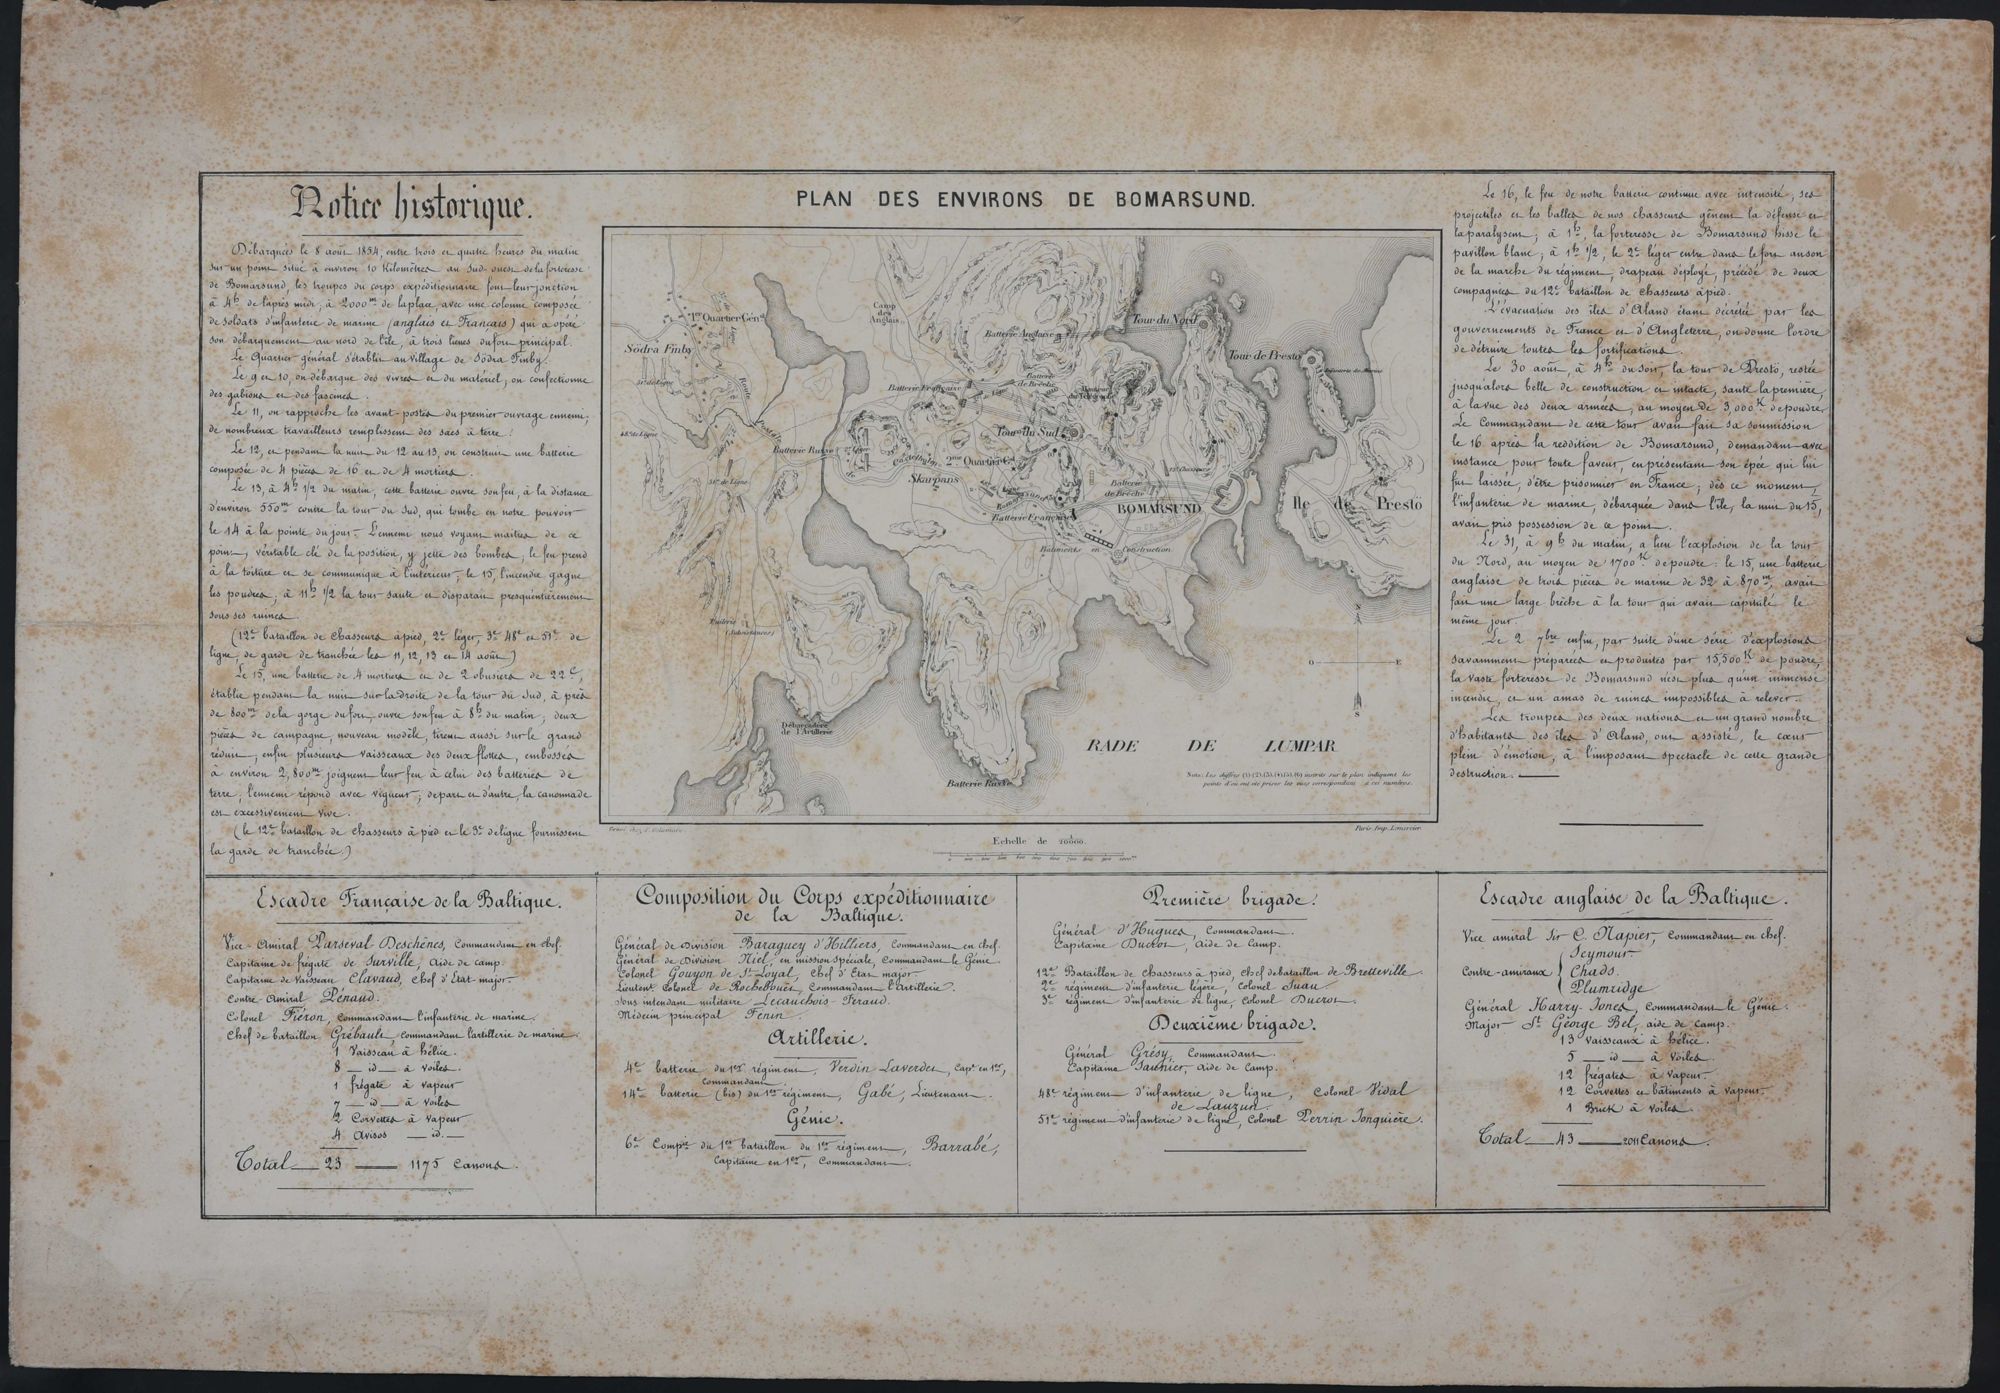 Notice historique.
Débarquées le 8 août 1854, entre trois et quatre heures du matin
sur un point situé à environ 10 Kilomètres au Sud-ouest de la forteresse
de Bomarsund, les troupes du corps expéditionnaire font leur jonction
à 4h de l'après midi, à 2000m de la place, avec une colonne composée
de soldats d'infanterie de marine (anglais et Français) qui a opéré
son débarquement au nord de l'île, à trois lieues du fort principal.
Le Quartier général s'établit au village de Södra Finby.
Le 9 et 10, on débarque des vivres et du matériel; on confectionne
des gabions et des fascines.
Le 11, on rapproche les avant-postes du premier ouvrage ennemi,
de nombreux travailleurs remplissent des sacs à terre.
Le 12, et pendant la nuit du 12 au 13, on construit une batterie
composée de 4 pièces de 16 et de 4 mortiers.
Le 13, à 4h 1/2 du matin, cette batterie ouvre son feu, à la distance
d'environ 550m contre la tour du Sud, qui tombe en notre pouvoir
le 14 à la pointe du jour. L'ennemi nous voyant maîtres de ce
point, véritable clé de la position, y jette des bombes, le feu prend
à la toiture et se communique à l'intérieur, le 15, l'incendie gagne
les poudres; à 11h 1/2 la tour saute et disparait presqu'entièrement
sous ses ruines.
(12e bataillon de Chasseurs à pied, 2e léger, 3e 48e et 51e de
ligne, de garde de tranchée les 11, 12, 13 et 14 août)
Le 15, une batterie de 4 mortiers et de 2 obusiers de 22c,
établie pendant la nuit sur la droite de la tour du Sud, à près
de 800m de la gorge du fort, ouvre son feu à 8h du matin; deux
pièces de campagne, nouveau modèle, tirent aussi sur le grand
réduit, enfin plusieurs vaisseaux des deux flottes, embossés
à environ 2,800m joignent leur feu à celui des batteries de
terre; l'ennemi répond avec vigueur; de part et d'autre, la canonnade
est excessivement vive.
(le 12e bataillon de chasseurs à pied et le 3e de ligne fournissent
la garde de tranchée.)
PLAN DES ENVIRONS DE BOMARSUND.
Camp
des
Anglais
1er Quartier Génl
Södra Finby
51e de Ligne
Route
48e de Ligne
Batterie Anglaise
Tour du Nord
Tour de Presto
Batterie
de Brèche
Batterie Française
Tour du Sud
Batterie Russe
2me Quartier Gl
Castelholm
Skarpans
51e de Ligne
Batterie
de Brèche
BOMARSUND
Ile de Prestö
Batterie Française
Bâtiments en Construction
(Subsistances)
Débarcadère
de l'Artillerie
Batterie Russe
N
O
E
S
RADE DE LUMPAR
Nota: Les chiffres (1) (2) (3) (4) (5) (6) inscrits sur le plan indiquent les
points d'où ont été prises les vues correspondant à ces numéros.
Gravé chez
Paris Imp. Lemercier
Echelle de 1/20000.
Le 16, le feu de notre batterie continue avec intensité, ses
projectiles et les balles de nos chasseurs gênent la défense et
la paralysent; à 1h, la forteresse de Bomarsund hisse le
pavillon blanc; à 1h 1/2, le 2e léger entre dans le fort au son
de la marche du régiment, drapeau déployé, précédé de deux
compagnies du 12e bataillon de chasseurs à pied.
L'évacuation des îles d'Aland étant décrétée par les
gouvernements de France et d'Angleterre, on donne l'ordre
de détruire toutes les fortifications.
Le 30 août, à 4h du soir, la tour de Presto, restée
jusqu'alors belle de construction et intacte, saute la première,
à la vue des deux armées, au moyen de 3,000K de poudre.
Le Commandant de cette tour avait fait sa soumission
le 16 après la reddition de Bomarsund, demandant avec
instance pour toute faveur, en présentant son épée qui lui
fut laissée, d'être prisonnier en France; dès ce moment
l'infanterie de marine, débarquée dans l'île, la nuit du 15,
avait pris possession de ce point.
Le 31, à 9h du matin, a lieu l'explosion de la tour
du Nord, au moyen de 1700K de poudre: le 15, une batterie
anglaise de trois pièces de marine de 32 à 870m, avait
fait une large brèche à la tour qui avait capitulé le
même jour.
Le 2 7bre enfin, par suite d'une série d'explosions
savamment préparées et produites par 15,500K de poudre,
la vaste forteresse de Bomarsund n'est plus qu'un immense
incendie, et un amas de ruines impossibles à relever.
Les troupes des deux nations et un grand nombre
d'habitants des îles d'Aland, ont assisté, le cœur
plein d'émotion, à l'imposant spectacle de cette grande
destruction.
Escadre Française de la Baltique.
Vice-Amiral Parseval-Deschênes, Commandant en chef.
Capitaine de frégate de Surville, Aide de camp.
Capitaine de Vaisseau Clavaud, Chef d'État major.
Contre Amiral Pénaud.
Colonel Fiéron, Commandant l'infanterie de marine.
Chef de bataillon Grébault, commandant l'artillerie de marine.
1 Vaisseau à hélice.
8 — id — à voiles.
1 frégate à vapeur
7 — id — à voiles
2 Corvettes à vapeur
4 Avisos — id. —
Total — 23 — 1175 Canons.
Composition du Corps expéditionnaire
de la Baltique.
Général de Division Baraguey d'Hilliers, Commandant en chef.
Général de Division Niel, en mission spéciale, Commandant le Génie.
Colonel Gouyon de St Loyal, Chef d'État major.
Lieutent Colonel de Rochebouët, Commandant l'artillerie.
Sous intendant militaire Lecauchois-Féraud.
Médecin principal Fenin.
Artillerie.
4e batterie du 1er régiment, Verdin Laverdet, Cape en 1er,
Commandant.
14e batterie (bis) du 1er régiment, Gabé, Lieutenant.
Génie.
6e Compie du 1er bataillon du 1er régiment, Barrabé,
Capitaine en 1er, Commandant.
Première brigade.
Général d'Hugues, Commandant.
Capitaine Ducrot, Aide de Camp.
12e Bataillon de chasseurs à pied, Chef de bataillon de Bretteville.
2e régiment d'infanterie légère, Colonel Suau.
3e régiment d'infanterie de ligne, Colonel Ducrot.
Deuxième brigade.
Général Grésy, Commandant.
Capitaine Saunier, Aide de Camp.
48e régiment d'infanterie de ligne, Colonel Vidal
de Lauzun.
51e régiment d'infanterie de ligne, Colonel Perrin Jonquière.
Escadre anglaise de la Baltique.
Vice amiral Sir C. Napier, Commandant en chef.
Contre-amiraux
Seymour
Chads.
Plumridge
Général Harry Jones, Commandant le Génie.
Major St George Bel, aide de Camp.
13 Vaisseaux à hélice.
5 — id — à voiles.
12 frégates à vapeur.
12 Corvettes et bâtiments à vapeur.
1 Brick à voiles.
Total — 43 — 2011 Canons.